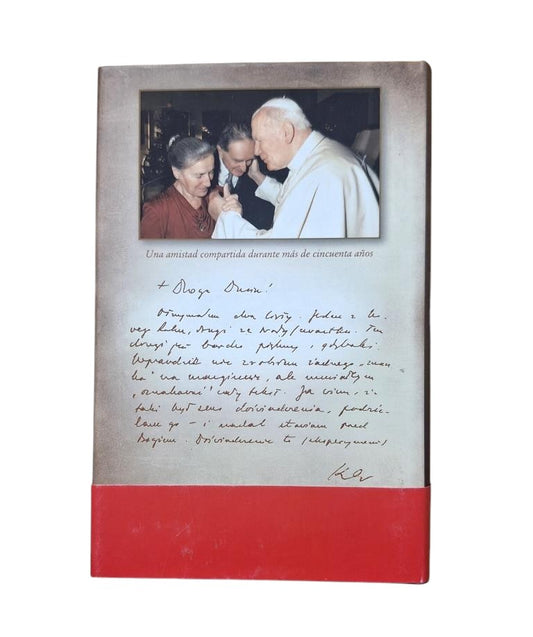 Una amistad compartida durante más de cincuenta años
+ Droga Dusiu!
Otrzymałem dwa listy. Jeden z
drugi ze środy/czwartku. Ten
drugi jest bardzo piękny i głęboki.
Wprawdzie nie zrobiłem żadnego „zna-
ku” na marginesie, ale musiałbym
„oznakować” cały tekst. Ja wiem, że
taki był sens doświadczenia, podzie-
lam go – i nadal stawiam przed
Bogiem. Doświadczenie to (eksperyment)